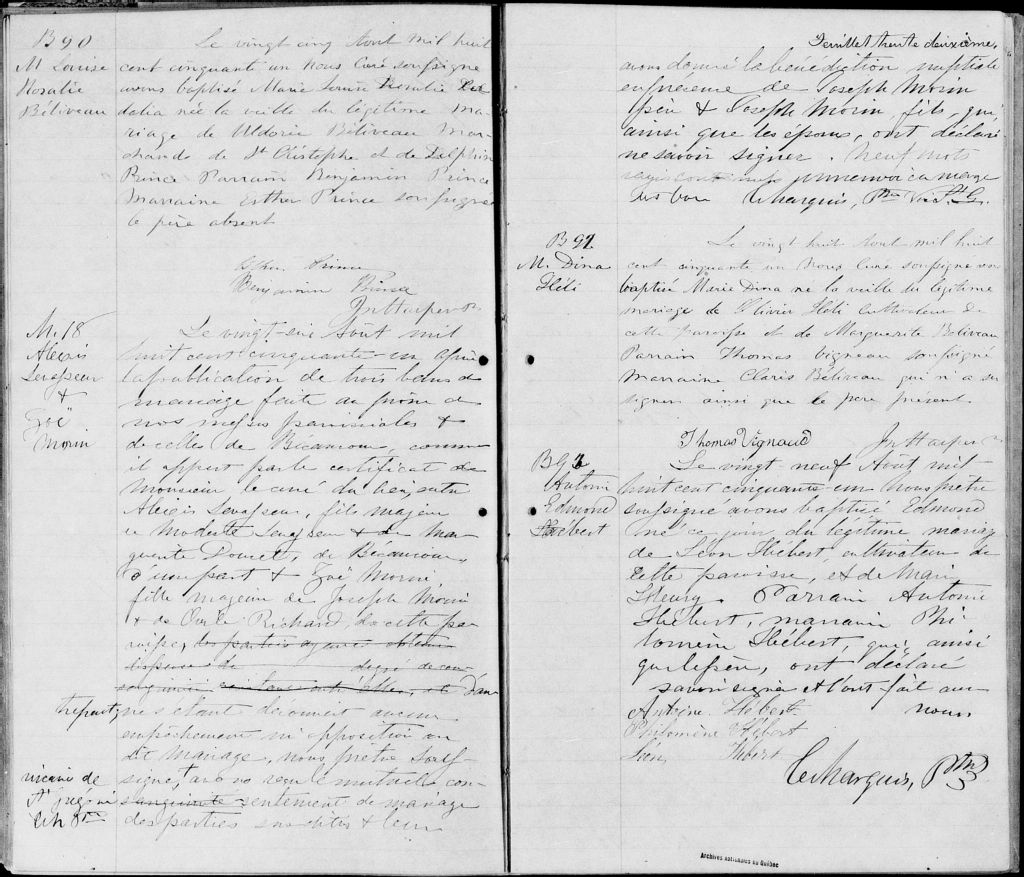 B 90
M Louise
Rosalie
Béliveau
Le vingt cinq Aout mil huit
cent cinquante un Nous Curé soussigné
avons baptisé Marie Louise Rosalie
née la veille du légitime ma-
riage de Uldoric Béliveau Mar-
chand de St Cristophe et de Delphine
Prince Parrain Benjamin Prince
Marraine Esther Prince soussignés
le père absent
Esther Prince
Benjamin Prince
Jn Harper Ptr
M. 18
Alexis
Levasseur
&
Zoë
Morin
Le vingt-six Août mil
huit cent cinquante-un après
la publication de trois bans de
mariage faite au prône de
nos messes paroissiales &
de celles de Bécancour, comme
il appert par le certificat de
Monsieur le curé du lieu, entre
Alexis Levasseur, fils majeur
de Modeste Levasseur & de Mar-
guerite Doucet, de Bécancour
d'une part & Zoë Morin,
fille majeure de Joseph Morin
& de Richard, de cette pa-
roisse, les parties ayant obtenu
dispense du degré de con-
sanguinité et d'au-
tre part, ne s'étant découvert aucun
empêchement ni opposition au
dit mariage, nous, prêtre souss-
signé, avons reçu le mutuel con-
sanguinité sentement de mariage
des parties susdites & leur
vicaire de
St Grégoire
Feuillet trente deuxième.
avons donné la bénédiction nuptiale
en présence de Joseph Morin
père & Joseph Morin, fils, qui,
ainsi que les époux, ont déclaré
ne savoir signer. Neuf mots
rayés sont nuls un renvoi en marge
est bon C Marquis, Ptre Vic. St. G.
B 91
M. Dina
Héli
Le vingt huit Aout mil huit
cent cinquante un Nous Curé soussigné avons
baptisé Marie Dina né la veille du légitime
mariage de Olivier Héli cultivateur de
cette paroisse et de Marguerite Béliveau
Parrain Thomas Vigneau soussigné
Marraine Claris Béliveau qui n'a su
signer ainsi que le père présent
Thomas Vignaud Jn Harper Ptr
B 92
Antoine
Edmond
Hébert
Le vingt-neuf Août mil
huit cent cinquante-un nous prêtre
soussigné avons baptisé Edmond
né ce jour du légitime mariage
de Léon Hébert, cultivateur de
cette paroisse, et de Marie
Fleury. Parrain Antoine
Hébert, marraine Phi-
lomène Hébert, qui, ainsi
que le père, ont déclaré
savoir signer et l'ont fait avec
nous
Antoine Hébert
Philomène Hébert
Léon Hébert
C Marquis, Ptre
Archives nationales du Québec